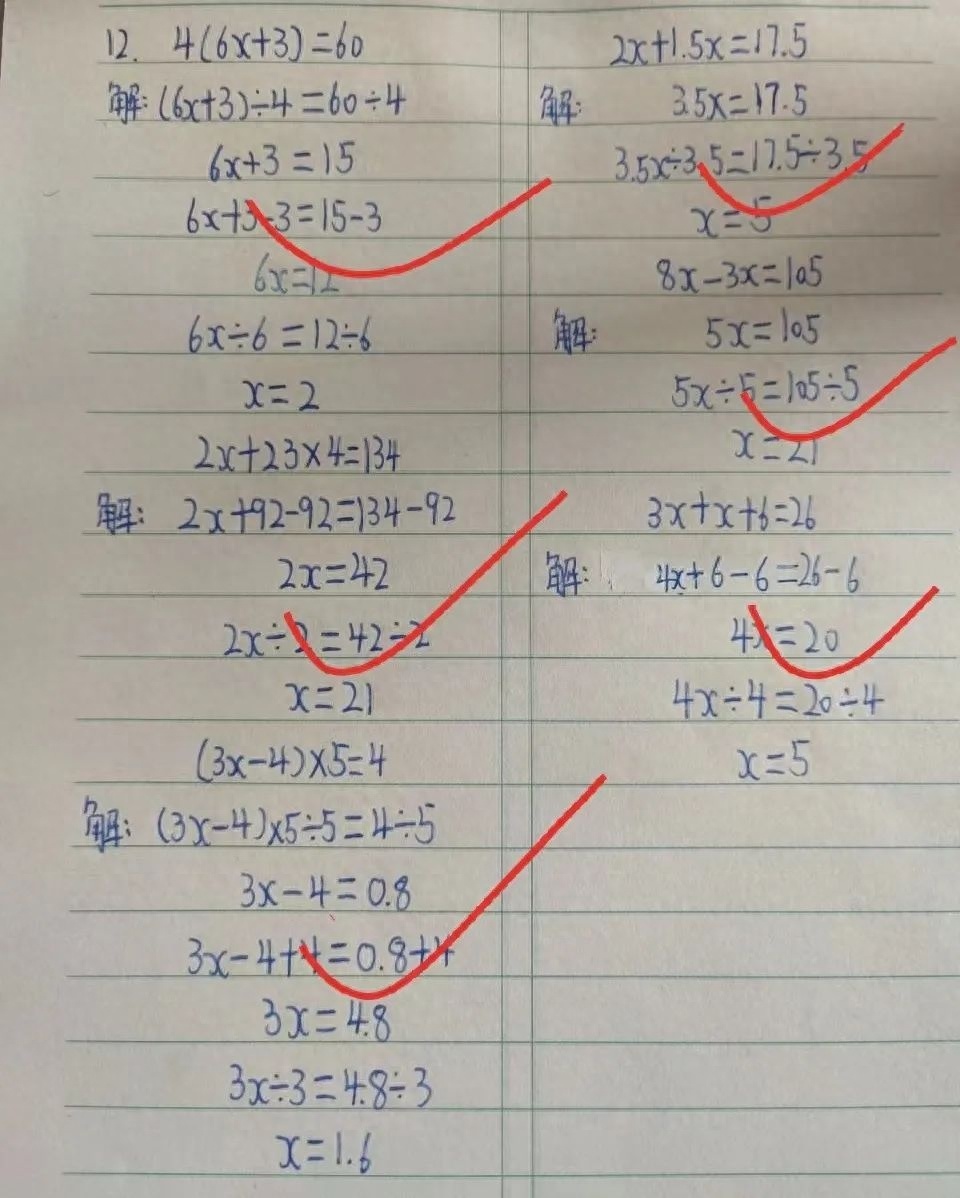 12. 4(6x+3)=60
解:(6x+3)÷4=60÷4
6x+3=15
6x+3-3=15-3
6x=12
6x÷6=12÷6
x=2
2x+23×4=134
解: 2x+92-92=134-92
2x=42
2x÷2=42÷2
x=21
(3x-4)×5=4
解: (3x-4)×5÷5=4÷5
3x-4=0.8
3x-4+4=0.8+4
3x=4.8
3x÷3=4.8÷3
x=1.6
2x+1.5x=17.5
解: 3.5x=17.5
3.5x÷3.5=17.5÷3.5
x=5
8x-3x=105
解: 5x=105
5x÷5=105÷5
x=21
3x+x+6=26
解: 4x+6-6=26-6
4x=20
4x÷4=20÷4
x=5